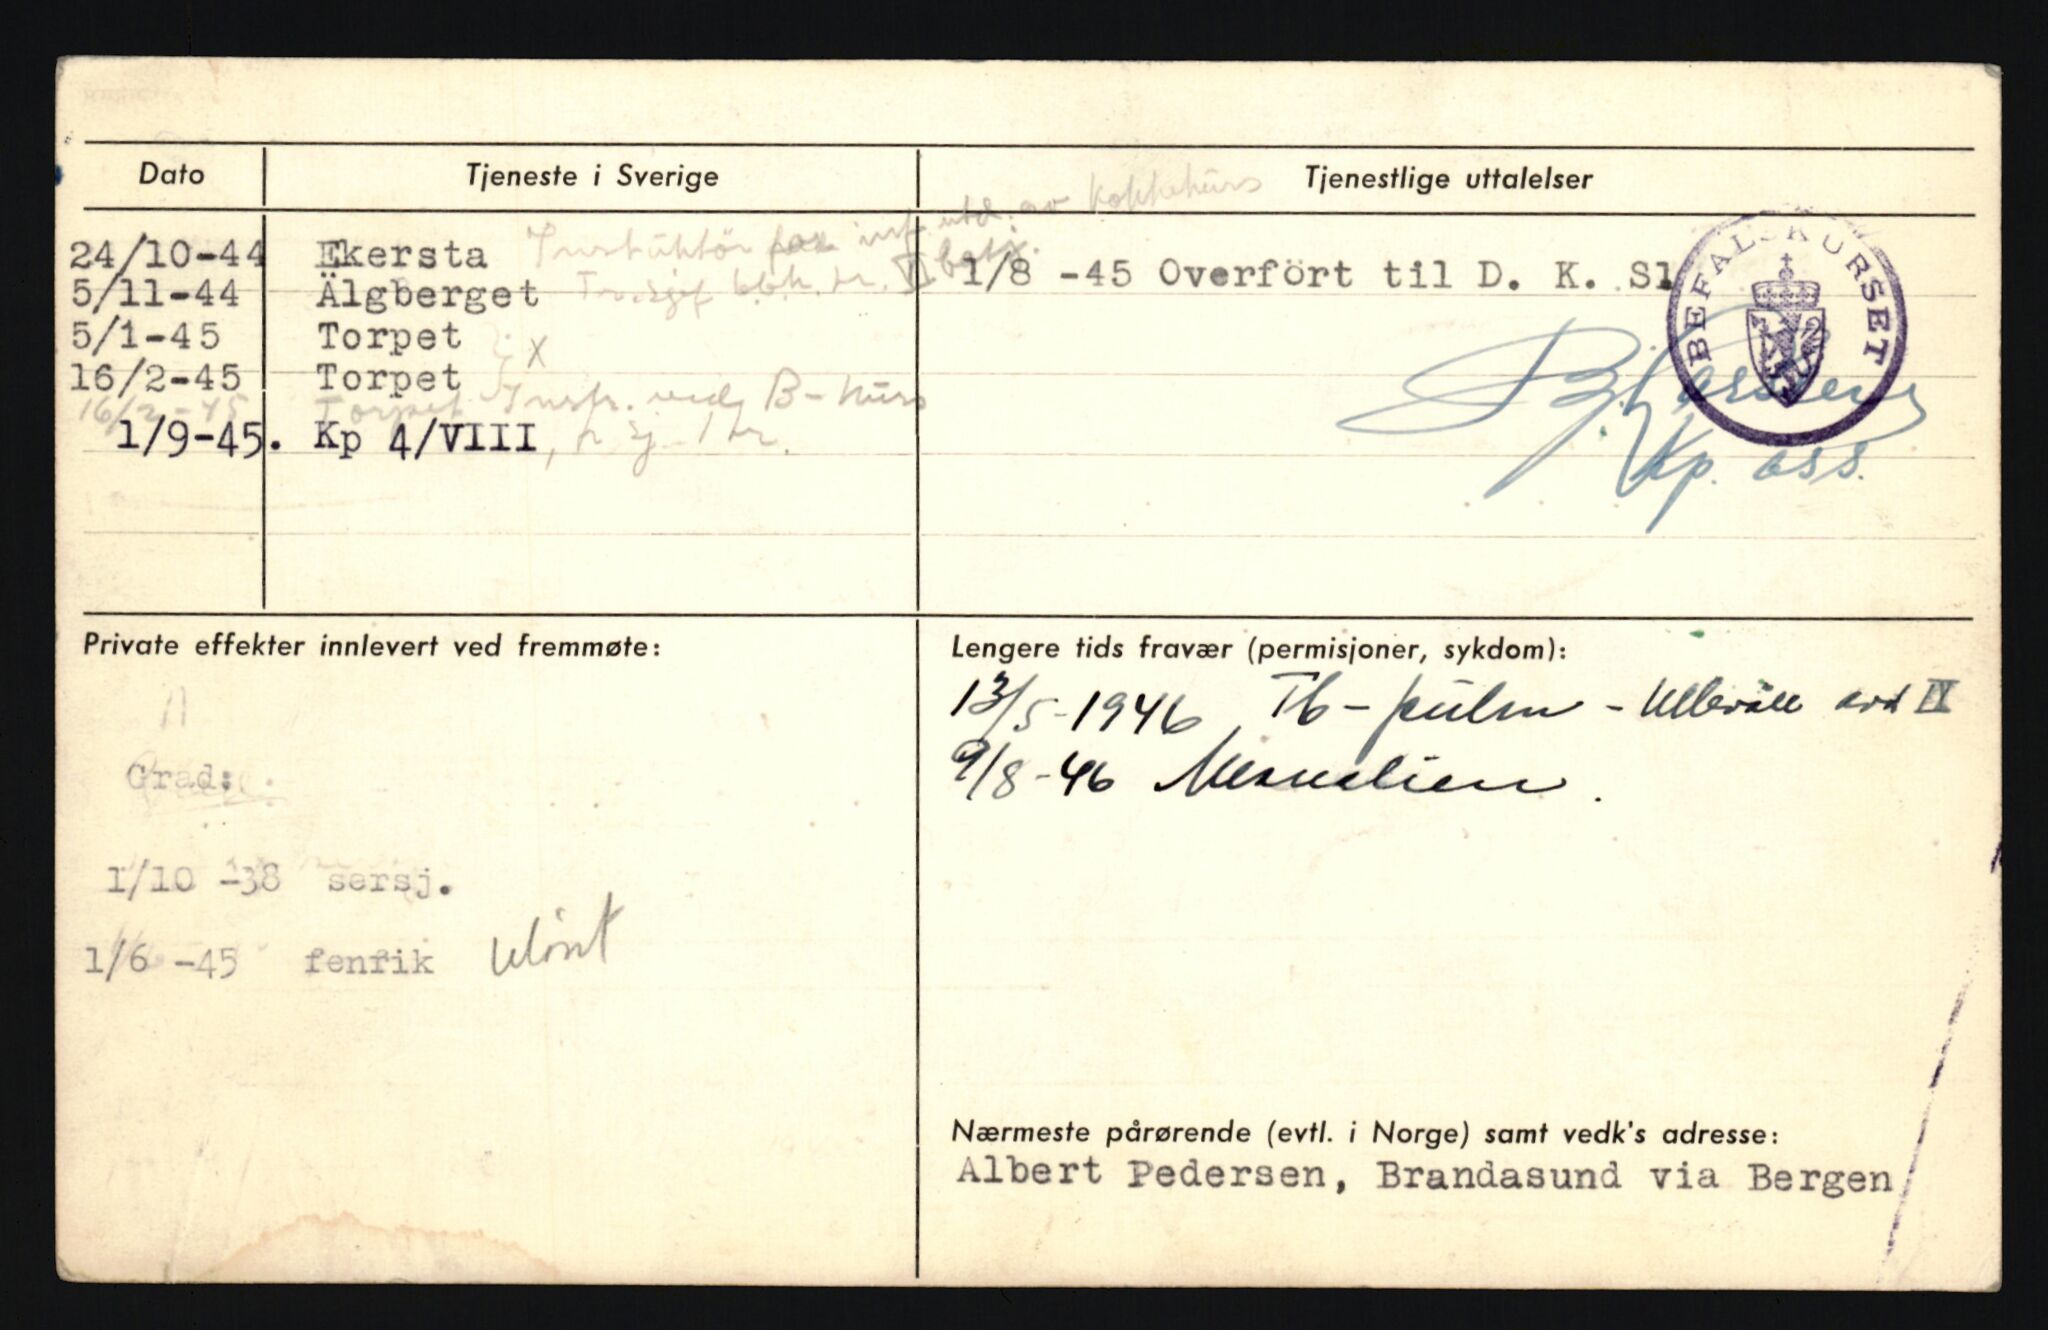 Dato
Tjeneste i Sverige
Tjenestlige uttalelser
24/10-44 Ekersta Instruktör for inf. utd. av Kokkekurs
5/11-44 Älgberget
5/1-45 Torpet
16/2-45 Torpet X
16/2-45 Torpet Instr. ved B-kurs
1/9-45. Kp 4/VIII
1/8 -45 Overfört til D. K. Sl
BEFALSKURSET
Kp. ass.
Private effekter innlevert ved fremmøte:
Grad:
1/10 -38 sersj.
1/6 -45 fenrik
Lengere tids fravær (permisjoner, sykdom):
13/5-1946 Tb-pulm - Ullevåll avd IX
9/8-46 Mesnalien.
Nærmeste pårørende (evtl. i Norge) samt vedk's adresse:
Albert Pedersen, Brandasund via Bergen